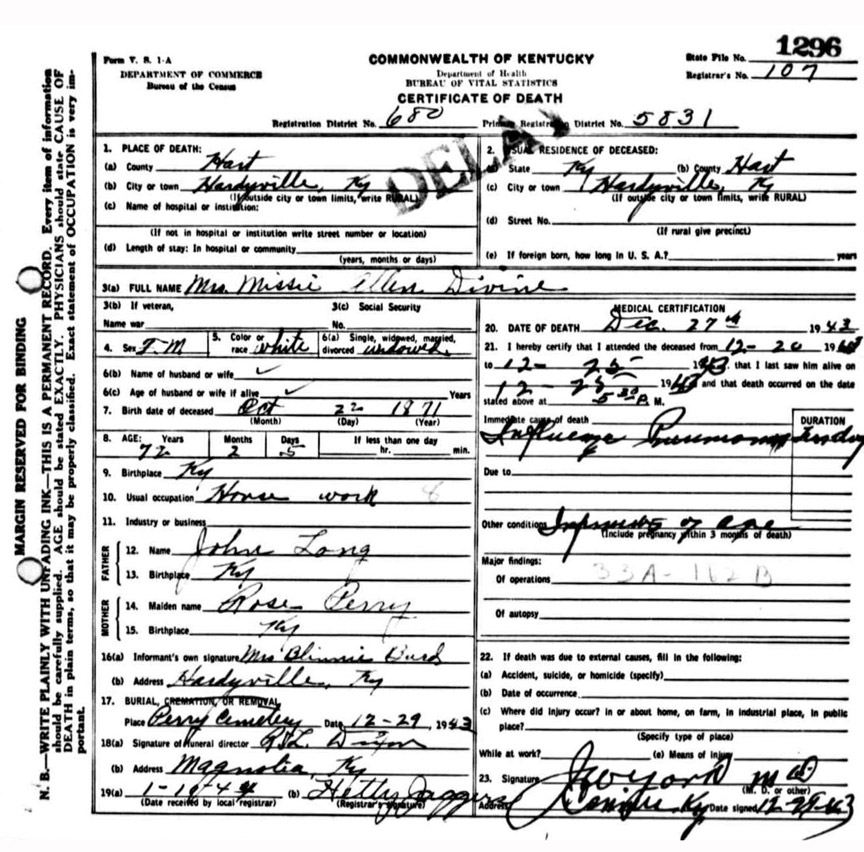 1296
Form V. S. 1-A
COMMONWEALTH OF KENTUCKY
State File No.
DEPARTMENT OF COMMERCE
Department of Health
Registrar's No. 107
Bureau of the Census
BUREAU OF VITAL STATISTICS
CERTIFICATE OF DEATH
Registration District No. 680 Primary Registration District No. 5831
DELAY
1. PLACE OF DEATH:
(a) County Hart
(b) City or town Hardyville, Ky
(If outside city or town limits, write RURAL)
(c) Name of hospital or institution:
(If not in hospital or institution write street number or location)
(d) Length of stay: In hospital or community
(years, months or days)
2. USUAL RESIDENCE OF DECEASED:
(a) State Ky (b) County Hart
(c) City or town Hardyville, Ky
(If outside city or town limits, write RURAL)
(d) Street No.
(If rural give precinct)
(e) If foreign born, how long in U. S. A.? years
3(a) FULL NAME Mrs. Missie Allen Divine
3(b) If veteran, 3(c) Social Security
Name war No.
4. Sex F M 5. Color or race white 6(a) Single, widowed, married, divorced widowed
6(b) Name of husband or wife
6(c) Age of husband or wife if alive Years
7. Birth date of deceased Oct 22 1871
(Month) (Day) (Year)
8. AGE: Years Months Days If less than one day
72 2 5 hr. min.
9. Birthplace Ky
10. Usual occupation House work
11. Industry or business
FATHER
12. Name John Long
13. Birthplace Ky
MOTHER
14. Maiden name Rose Perry
15. Birthplace Ky
16(a) Informant's own signature Mrs
(b) Address Hardyville, Ky
17. BURIAL, CREMATION, OR REMOVAL
Place Perry Cemetery Date 12-29, 1943
18(a) Signature of funeral director
(b) Address Magnolia, Ky
19(a) 1-10-44 (b) Hettie Jaggers
(Date received by local registrar) (Registrar's signature)
MEDICAL CERTIFICATION
20. DATE OF DEATH Dec. 27th 1943
21. I hereby certify that I attended the deceased from 12-20 1943
to 12-25 1943, that I last saw him alive on
12-25 1943 and that death occurred on the date
stated above at 5 30 P. M.
Immediate cause of death DURATION
Due to
Other conditions of age
(Include pregnancy within 3 months of death)
Major findings:
Of operations 33A-112B
Of autopsy
22. If death was due to external causes, fill in the following:
(a) Accident, suicide, or homicide (specify)
(b) Date of occurrence
(c) Where did injury occur? in or about home, on farm, in industrial place, in public
place?
(Specify type of place)
While at work? (e) Means of injury
23. Signature M D
(M. D. or other)
Address Ky Date signed 12-29-43
MARGIN RESERVED FOR BINDING
N. B.—WRITE PLAINLY WITH UNFADING INK—THIS IS A PERMANENT RECORD. Every item of information
should be carefully supplied. AGE should be stated EXACTLY. PHYSICIANS should state CAUSE OF
DEATH in plain terms, so that it may be properly classified. Exact statement of OCCUPATION is very im-
portant.